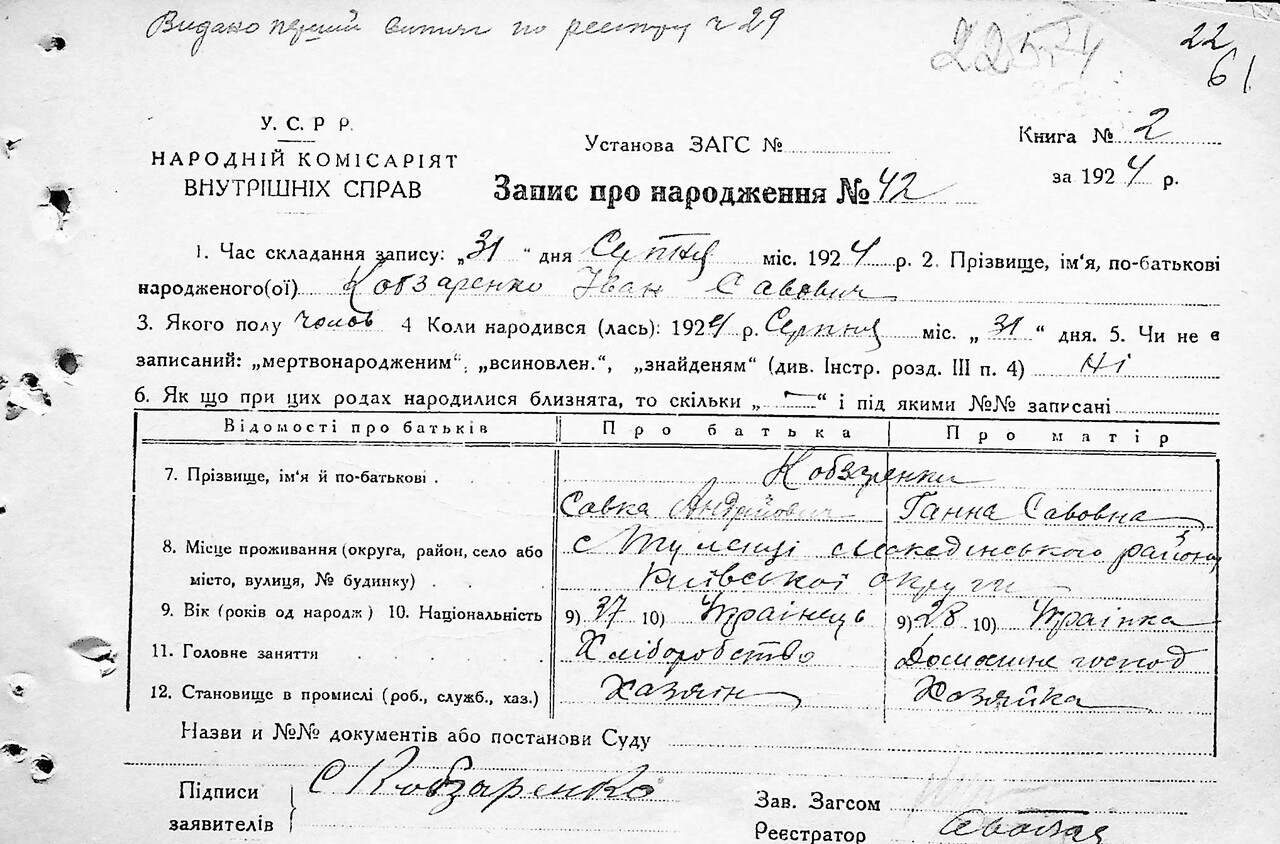 Видано перший витяг по реєстру ч 29
22
61
У. С. Р Р.
НАРОДНІЙ КОМІСАРІЯТ
ВНУТРІШНІХ СПРАВ
Установа ЗАГС №
Книга № 2
за 1924 р.
Запис про народження № 42
1. Час складання запису: „31 “ дня Серпня міс. 1924 р. 2. Прізвище, ім'я, по-батькові
народженого(ої) Кобзаренко Іван Савович
3. Якого полу чолов 4 Коли народився (лась): 1924 р. Серпня міс. „ 31 “ дня. 5. Чи не є
записаний: „мертвонародженим“, „всиновлен.“, „знайденям“ (див. Інстр. розд. III п. 4) Ні
6. Як що при цих родах народилися близнята, то скільки „ — “ і під якими №№ записані
Відомості про батьків Про батька Про матір
7. Прізвище, ім'я й по-батькові . Кобзаренки
Савка Андрійович Ганна Савовна
8. Місце проживання (округа, район, село або
місто, вулиця, № будинку) . .
с Тулинці району
Київської округи
9. Вік (років од народж) 10. Національність 9) 37 10) Українець 9) 28 10) Українка
11. Головне заняття . . . . . Хліборобство Домашнє господ
12. Становище в промислі (роб., служб., хаз.) Хазяїн Хазяйка
Назви и №№ документів або постанови Суду
Підписи
заявителів
С Кобзаренко
Зав. Загсом
Реєстратор